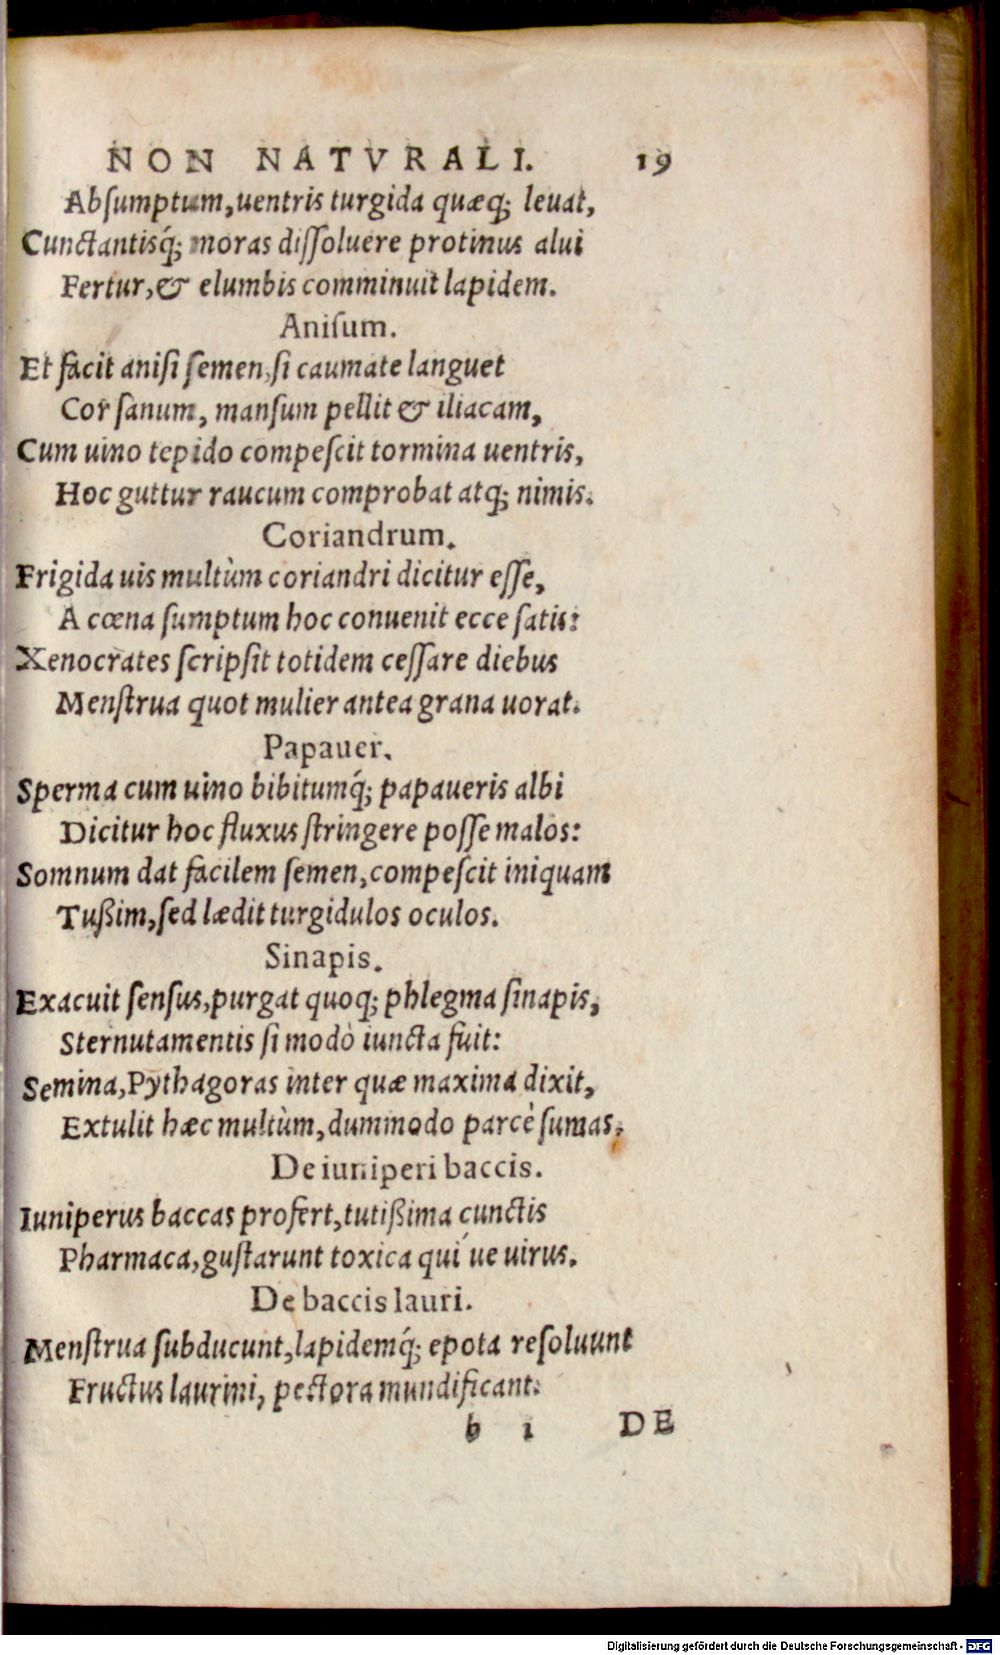 NON NATVRALI. 19
Abſumptum, uentris turgida quæq; leuat,
Cunctantisq́; moras diſſoluere protinus alui
Fertur, & elumbis comminuit lapidem.
Aniſum.
Et facit aniſi ſemen, ſi caumate languet
Cor ſanum, manſum pellit & iliacam,
Cum uino tepido compeſcit tormina uentris,
Hoc guttur raucum comprobat atq; nimis.
Coriandrum.
Frigida uis multùm coriandri dicitur eſſe,
A cœna ſumptum hoc conuenit ecce ſatis:
Xenocrates ſcripſit totidem ceſſare diebus
Menſtrua quot mulier antea grana uorat.
Papauer.
Sperma cum uino bibitumq́; papaueris albi
Dicitur hoc fluxus ſtringere poſſe malos:
Somnum dat facilem ſemen, compeſcit iniquam
Tußim, ſed lædit turgidulos oculos.
Sinapis.
Exacuit ſenſus, purgat quoq; phlegma ſinapis,
Sternutamentis ſi modò iuncta fuit:
Semina, Pythagoras inter quæ maxima dixit,
Extulit hæc multùm, dummodo parcè ſumas.
De iuniperi baccis.
Iuniperus baccas profert, tutißima cunctis
Pharmaca, guſtarunt toxica quí ue uirus.
De baccis lauri.
Menſtrua ſubducunt, lapidemq́; epota reſoluunt
Fructus laurini, pectora mundificant.
b 1 DE
Digitalisierung gefördert durch die Deutsche Forschungsgemeinschaft - DFG